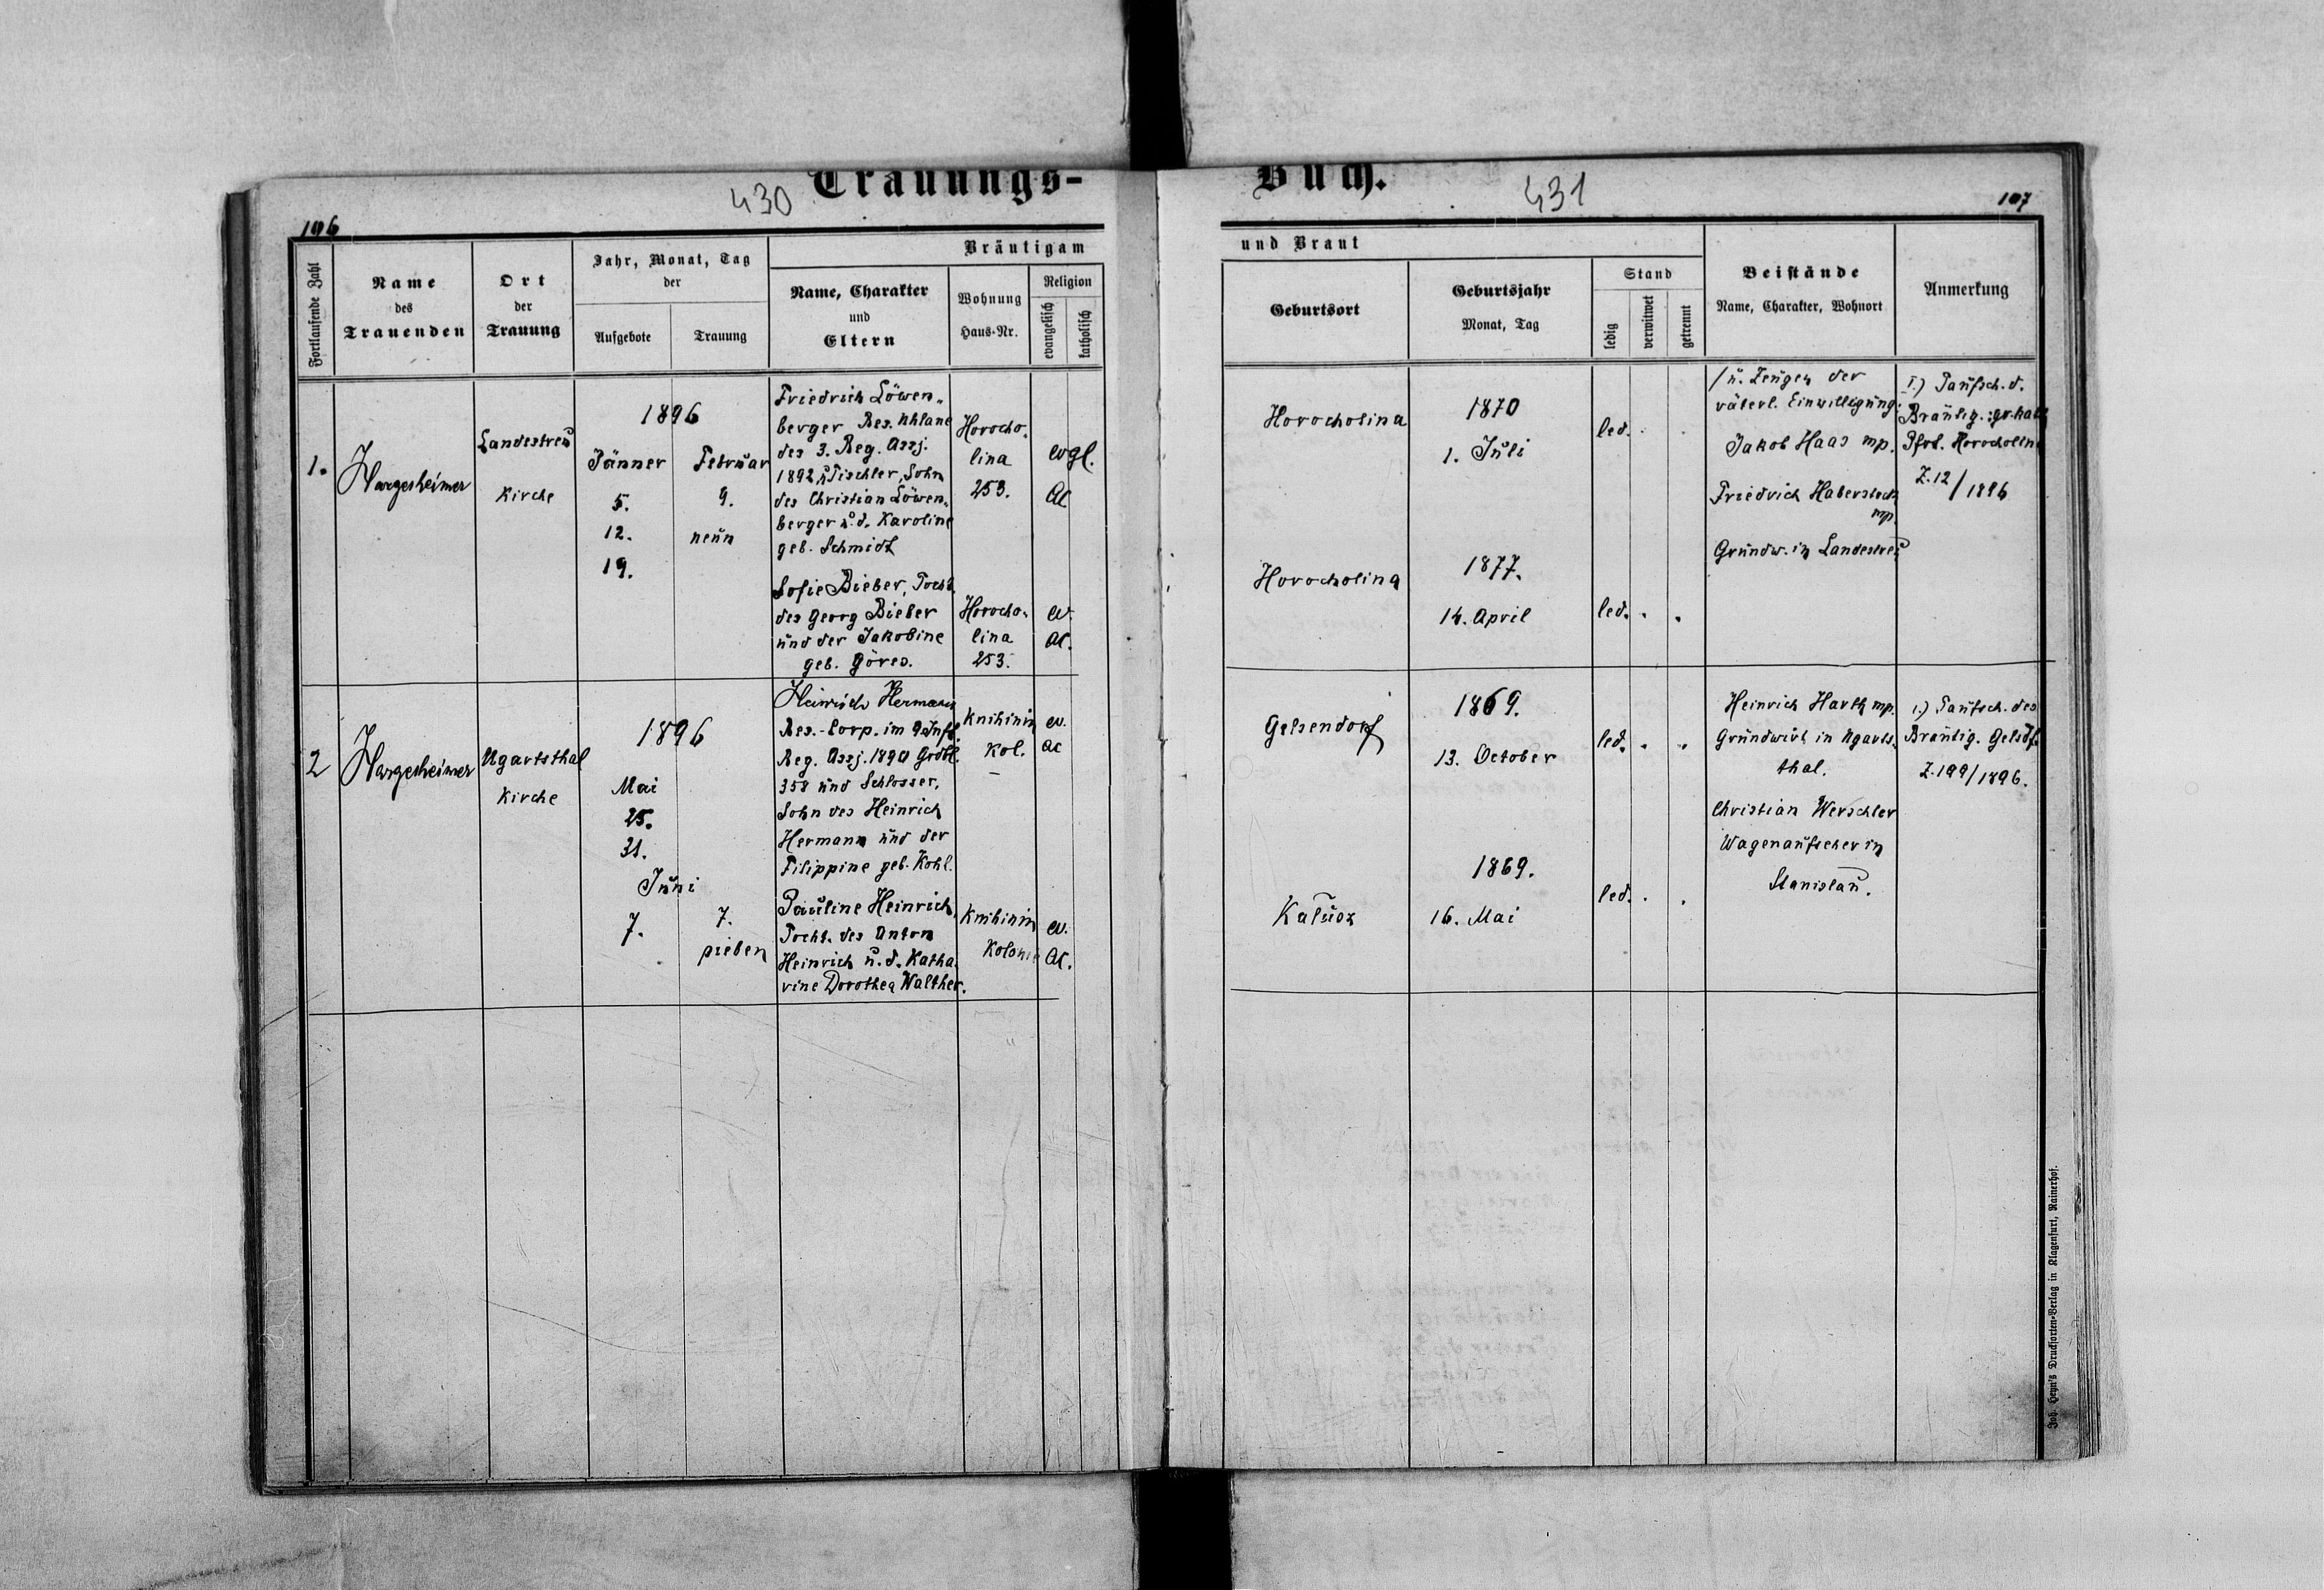 430 Trauungs-
106
Bräutigam
Fortlaufende Zahl
Name
des
Trauenden
Ort
der
Trauung
Jahr, Monat, Tag
der
Aufgebote
Trauung
Name, Charakter
und
Eltern
Wohnung
Haus-Nr.
Religion
evangelisch
katholisch
1.
Hargesheimer
Landestreu
Kirche
1896
Jänner
5.
12.
19.
Februar
9.
neun
Friedrich Löwen-
berger Res. Uhlane
des 3. Reg. Assj.
1892 u. Tischler, Sohn
des Christian Löwen-
berger u. d. Karoline
geb. Schmidt
Horocho-
lina
253.
evgl.
AC
Sofie Bieber, Tocht.
des Georg Bieber
und der Jakobine
geb. Göres.
Horocho-
lina
253.
ev.
AC.
2
Hargesheimer
Ugartsthal
Kirche
1896
Mai
25.
31.
Juni
7.
7.
sieben
Heinrich Hermann
Res.-Corp. im Inft.
Reg. Assj. 1890 Grdbl.
358 und Schlosser,
Sohn des Heinrich
Hermann und der
Filippine geb. Kohl.
Knihinin
Kol.
ev.
AC
Pauline Heinrich,
Tocht. des Anton
Heinrich u. d. Katha-
rine Dorothea Walther.
Knihinin
Kolonie
ev.
AC.
Buch. 431
107
und Braut
Geburtsort
Geburtsjahr
Monat, Tag
Stand
ledig
verwitwet
getrennt
Beistände
Name, Charakter, Wohnort
Anmerkung
Horocholina
1870
1. Juli
led. . .
/u. Zeugen der
väterl. Einwilligung:
Jakob Haas mp.
Friedrich Haberstock
mp.
Grundw. in Landestreu
1.) Taufsch. d.
Bräutig. :gr. kath
Pfof. Horocholina
Z. 12/1896
Horocholina
1877.
14. April
led. . .
Gelsendorf
1869.
13. October
led. . .
Heinrich Harth mp.
Grundwirt in Ugarts-
thal.
Christian Werschler
Wagenaufseher in
Stanislau.
1.) Taufsch. des
Bräutig. Gelsdf.
Z. 199/1896.
Kałusz
1869.
16. Mai
led. . .
Joh. Heyn's Drucksorten-Verlag in Klagenfurt, Rainerhof.